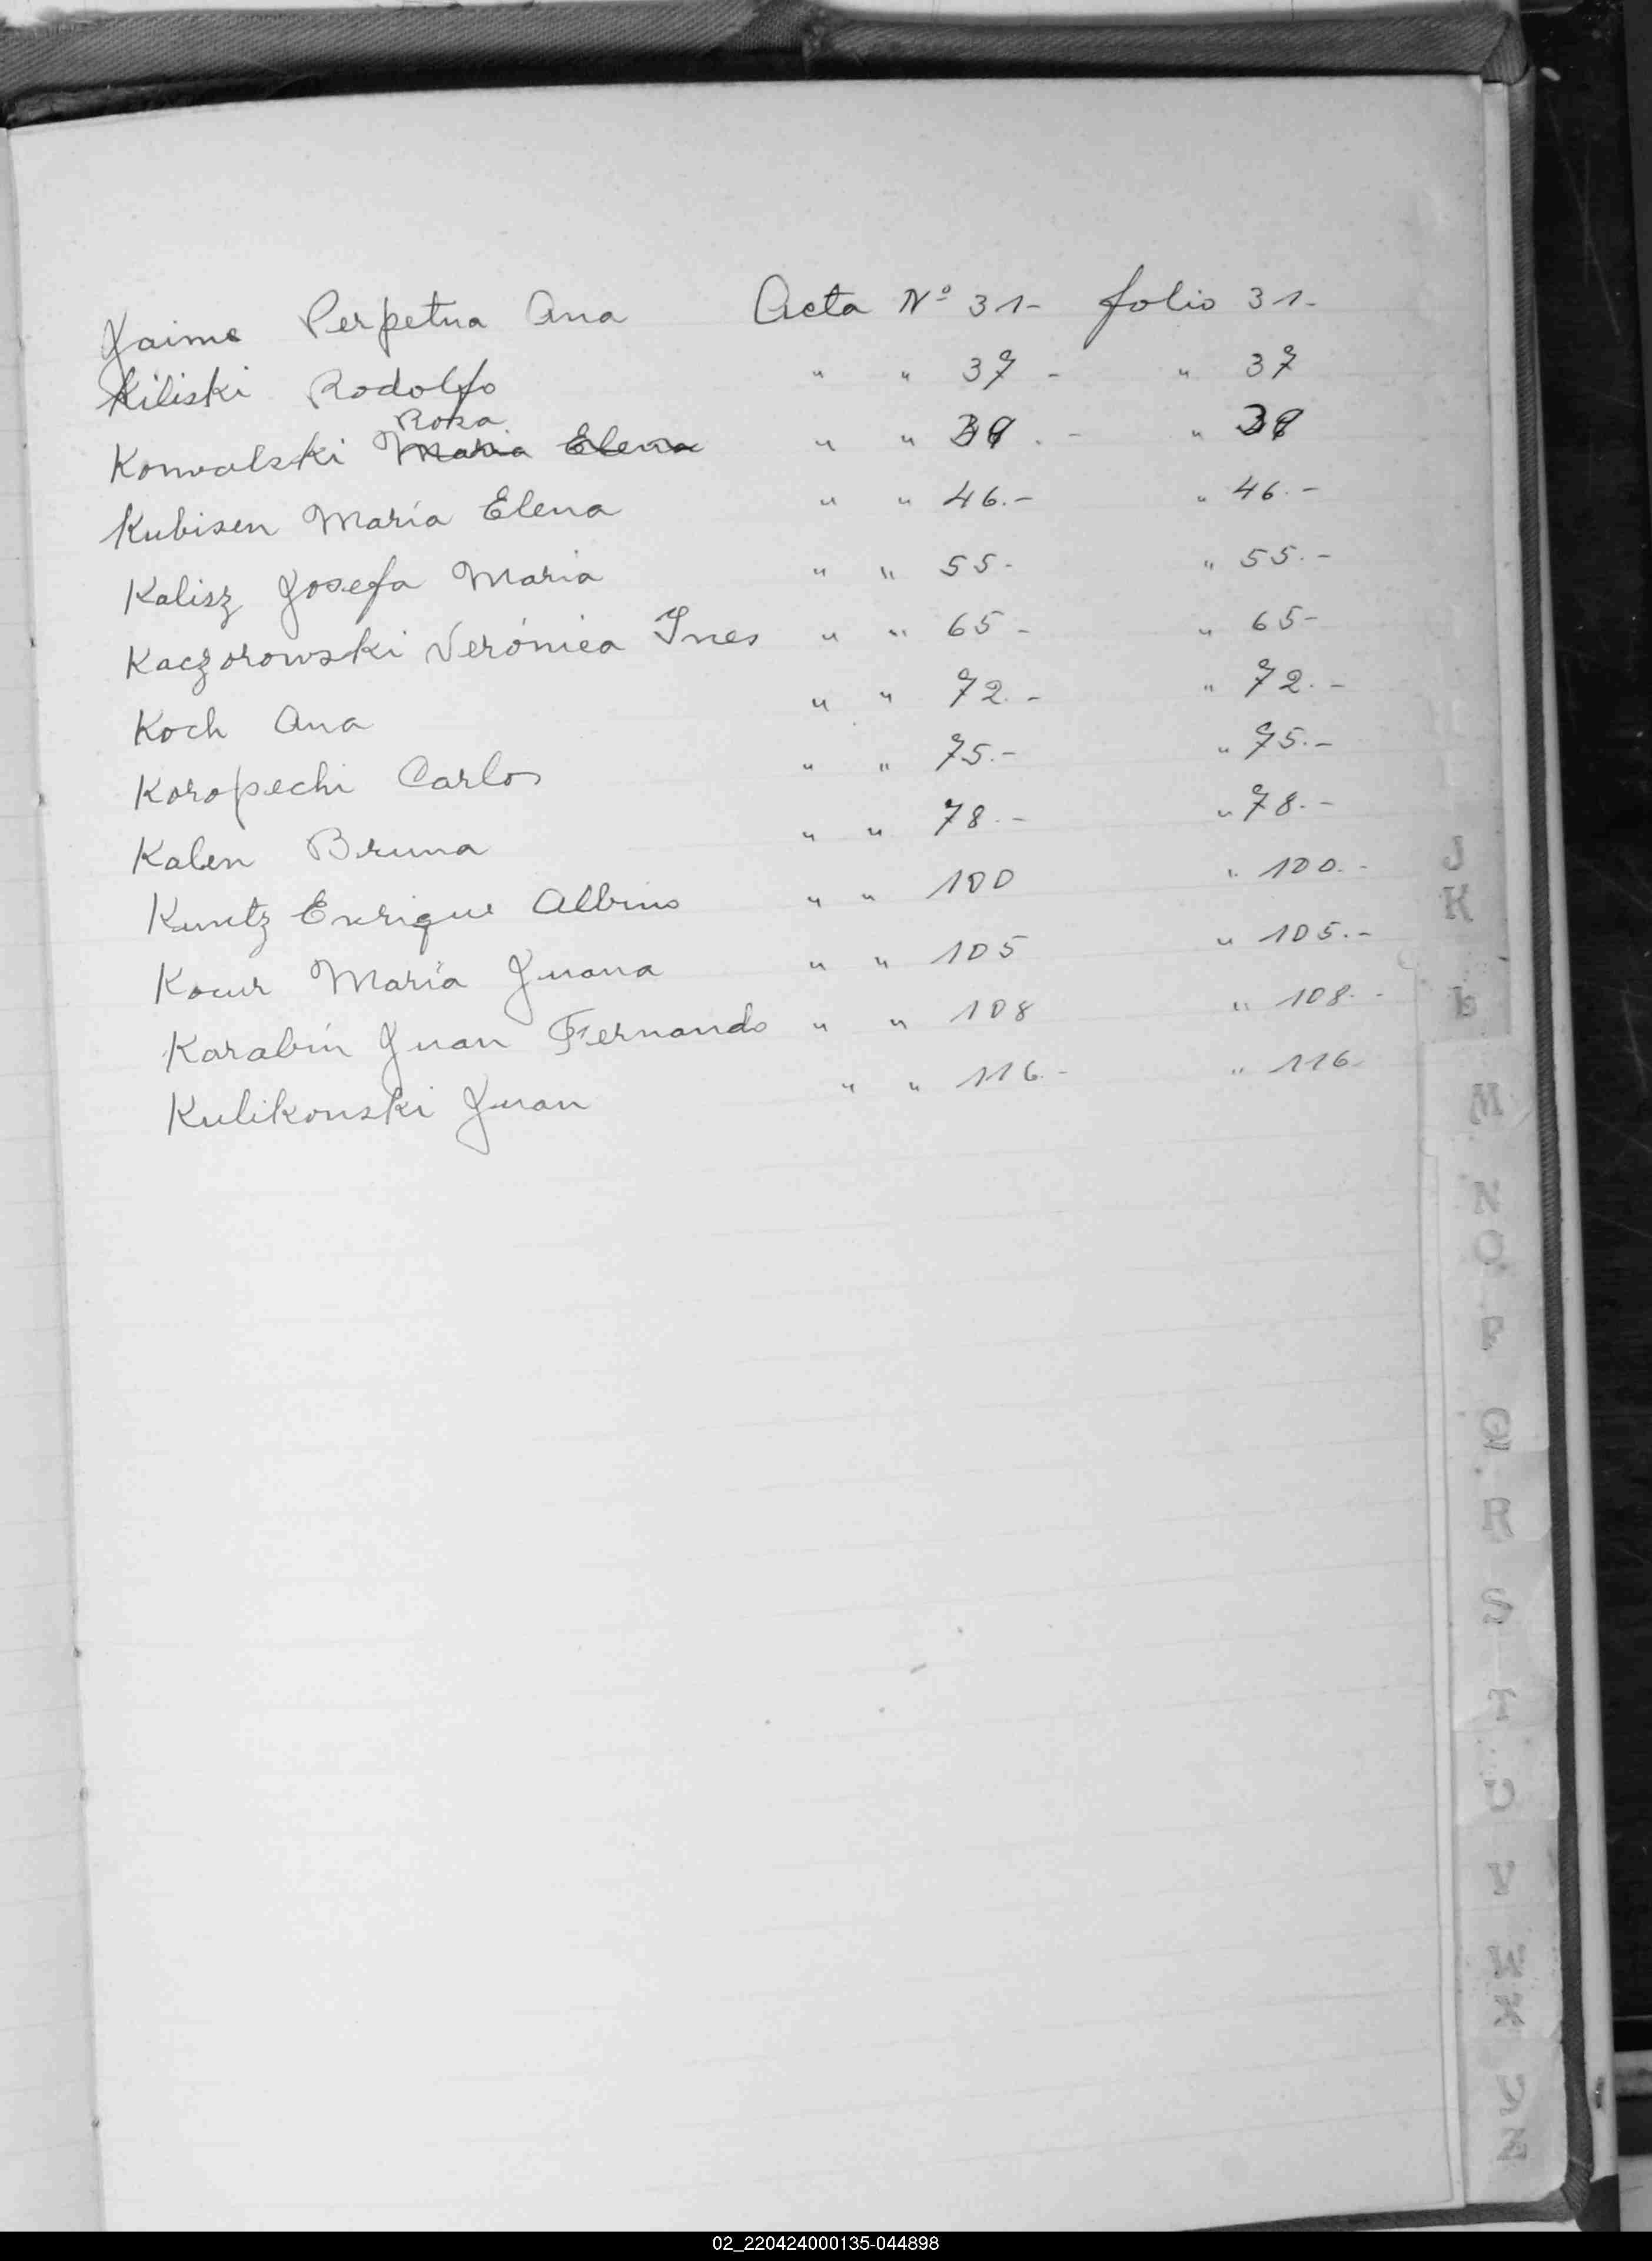 Jaime Perpetua Ana Acta Nº 31- folio 31-
Kiliski Rodolfo " " 37 - " 37
Rosa
Konwalski Maria Elena " " 39.- " 39
Kubisen María Elena " " 46.- " 46.-
Kalisz Josefa Maria " " 55- " 55.-
Kaczorowski Verónica Ines " " 65- " 65-
Koch Ana " " 72.- " 72.-
Koropechi Carlos " " 75.- " 75.-
Kalen Bruna " " 78.- " 78.-
Kuntz Enrique Albino " " 100 " 100.-
Kocur María Juana " " 105 " 105.-
Karabin Juan Fernando " " 108 " 108.-
Kulikonski Juan " " 116.- " 116-
J
K
L
M
N
O
P
Q
R
S
T
U
V
W
X
Y
Z
02_220424000135-044898